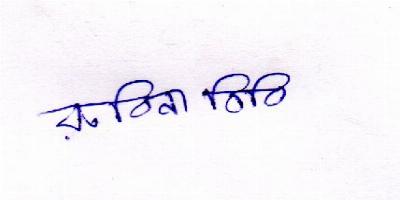 রুবিনা বিবি